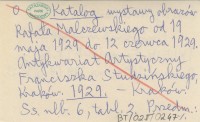 Katalog wystawy obrazów
Rafała Malczewskiego od 19
maja 1929 do 12 czerwca 1929.
Antykwariat Artystyczny
Franciszka Studzińskiego,
Kraków. 1929. - Kraków
S. nlb. 6, tabl. 2. Przedm.: